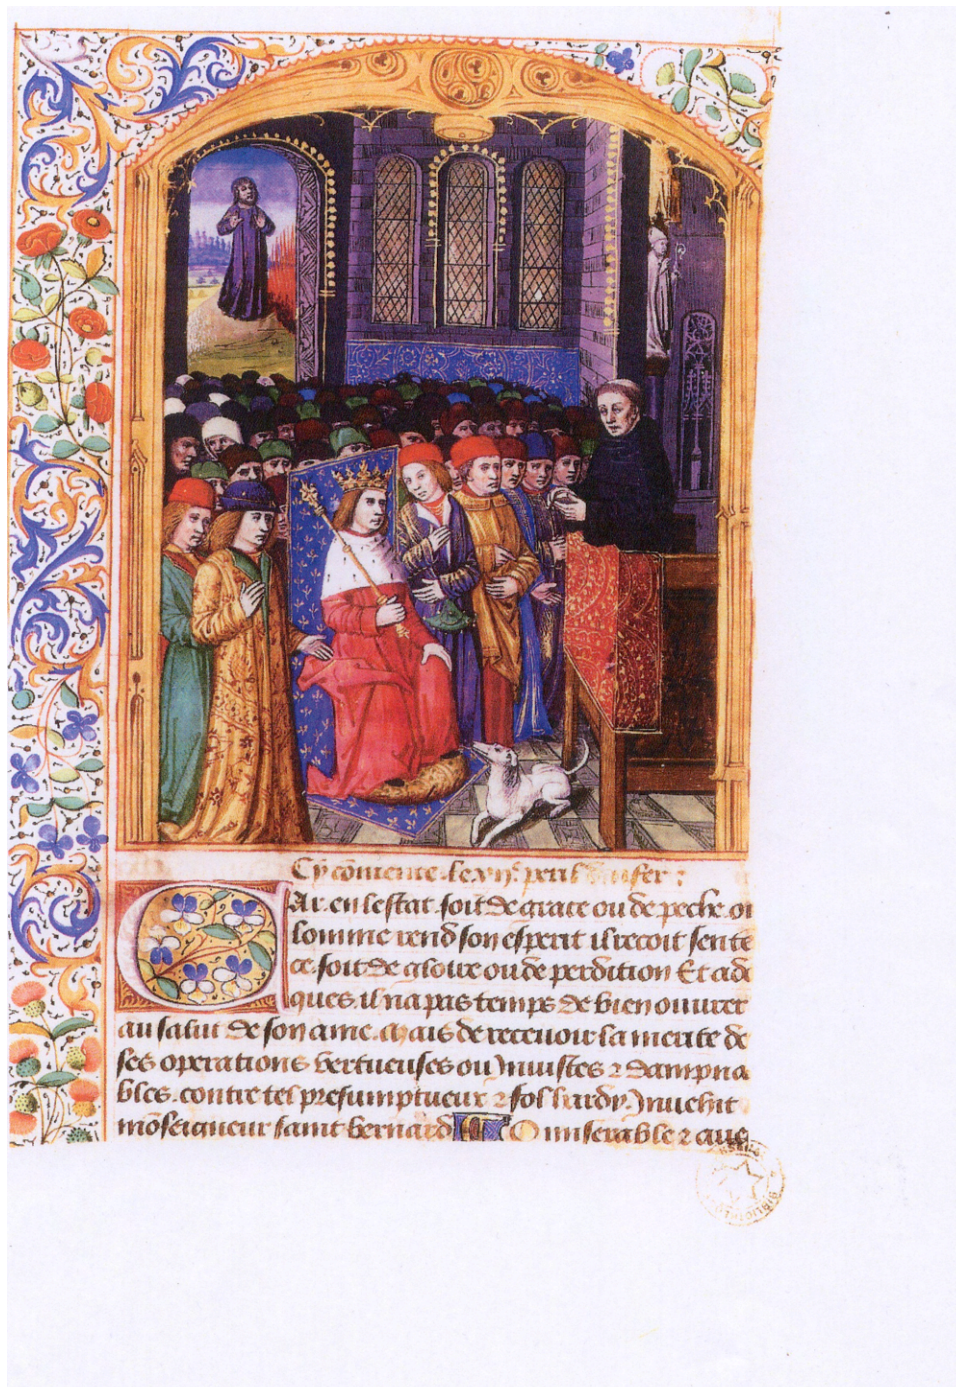 Cy cōmence le xvije peril denfer:
Car en lestat soit de grace ou de peche oi
lomme rend son esperit il recoit sente
ce. soit de gloire ou de perdition Et ad
ques il na pas temps de bien ouurer
au salut de son ame. Mais de recevoir la merite de
ses operations vertueuses ou Iniustes ⁊ dampna
bles. contre tel presumptueux ⁊ fol hardy. Inuehit
mōseigneur saint bernard O miserable ⁊ aue